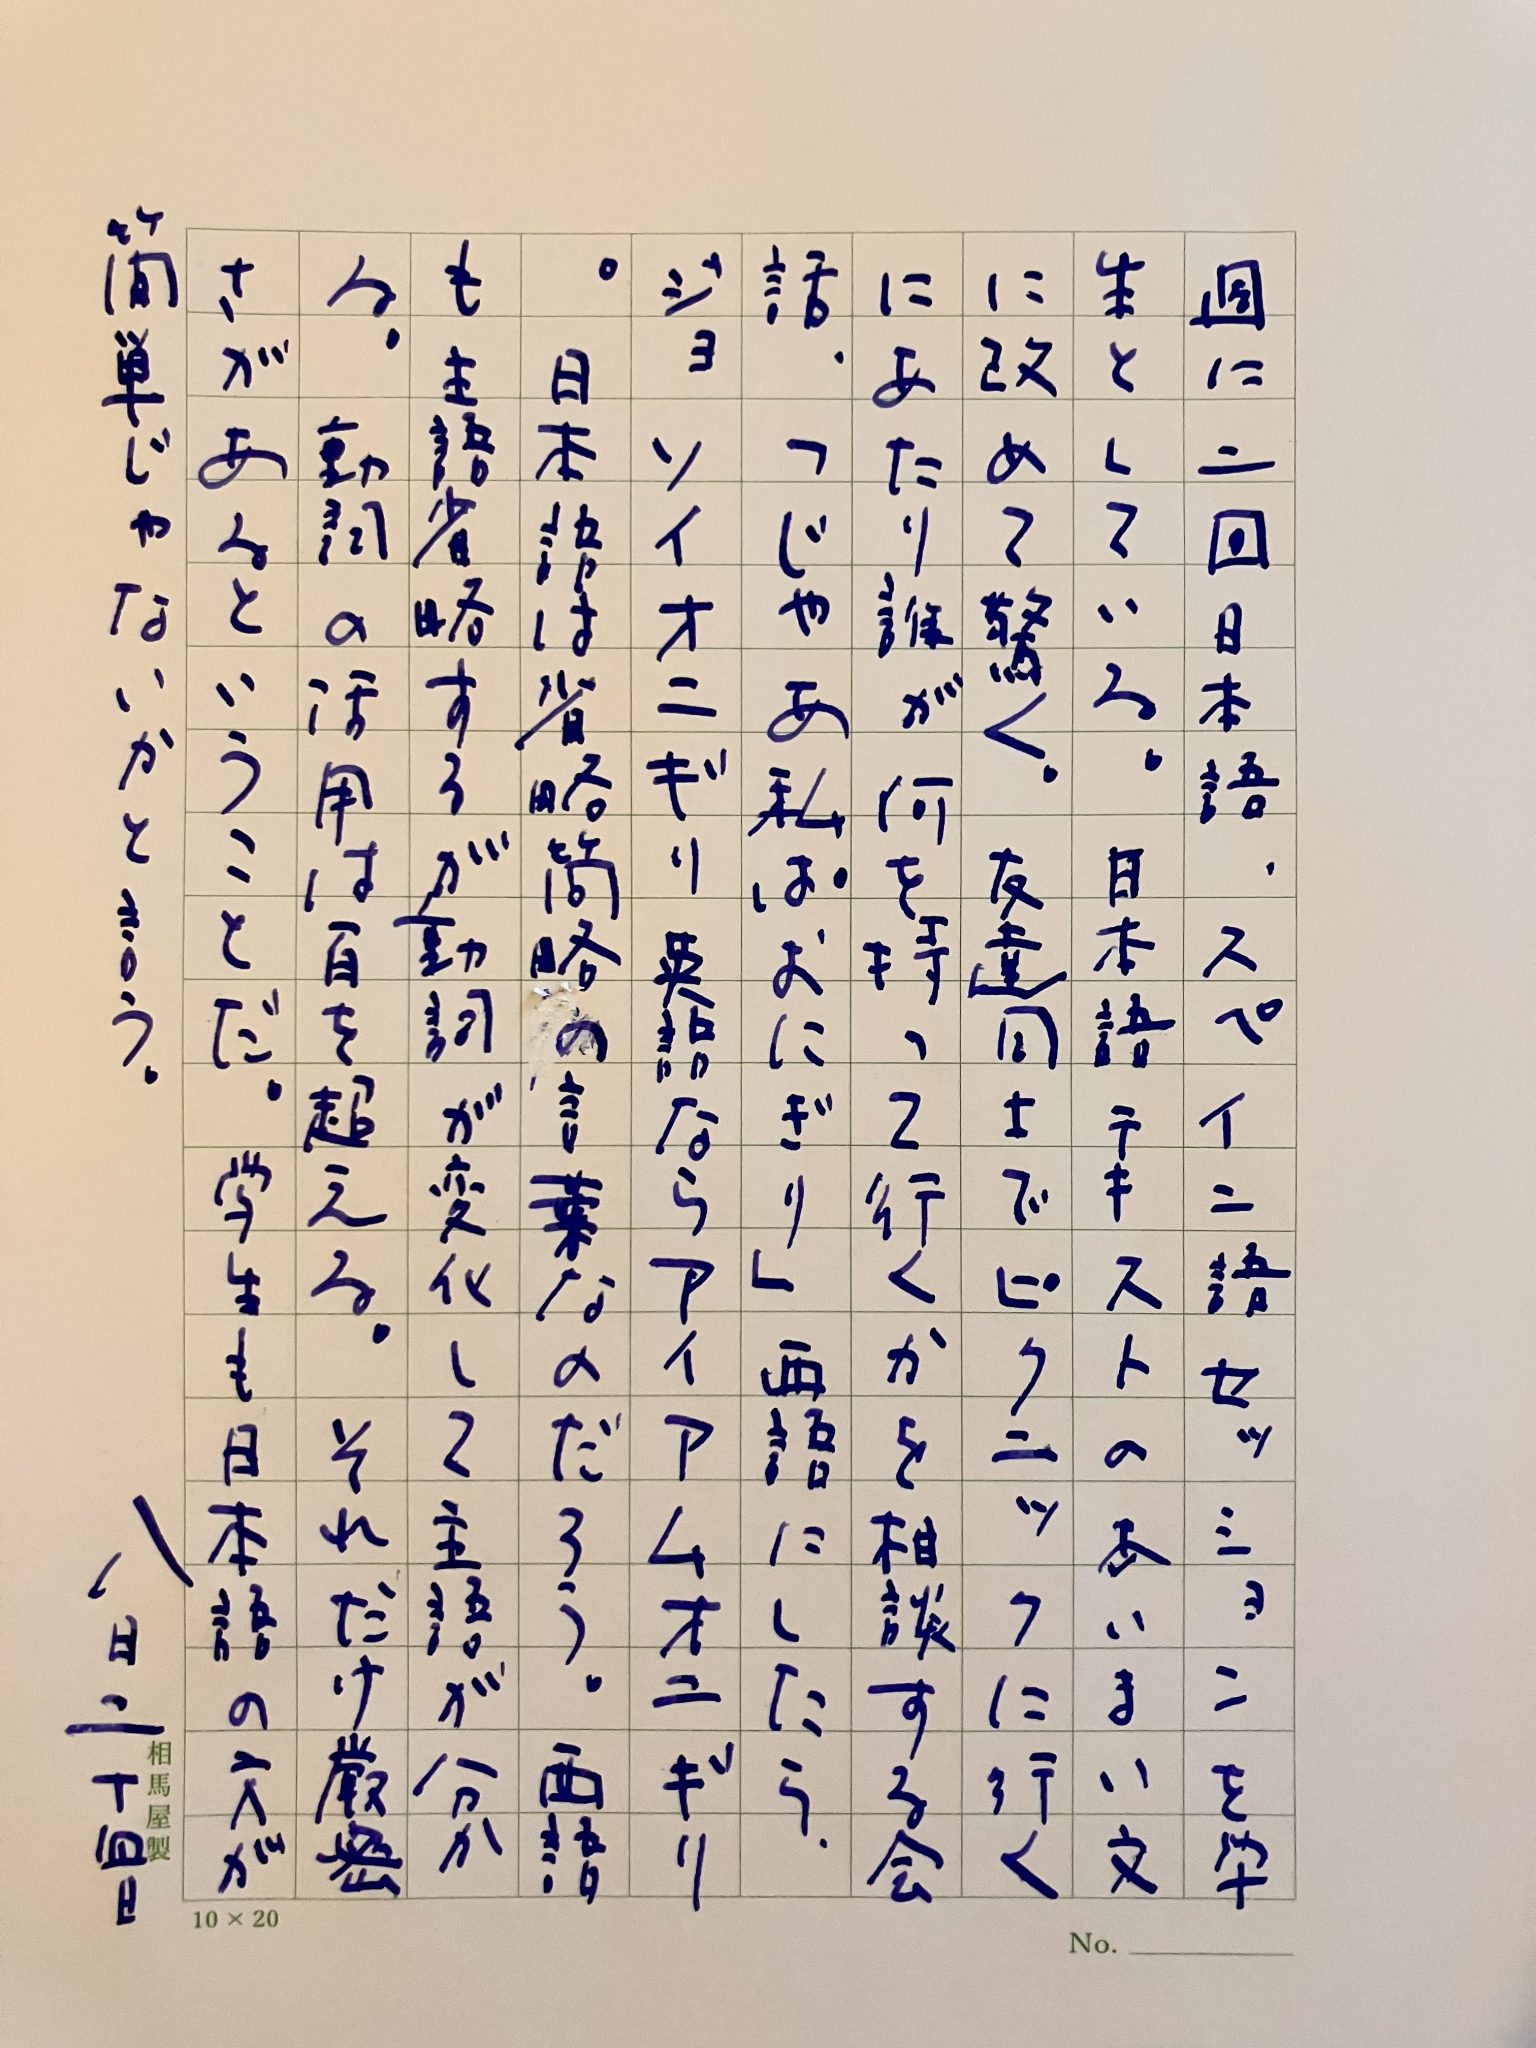 週に二回日本語、スペイン語セッションを学
生としている。日本語テキストのあいまい文
に改めて驚く。友達同士でピクニックに行く
にあたり誰が何を持って行くかを相談する会
話、つじゃあ私ぱおにぎり」西語にしたらヽ
ジョソイオニギリ英語ならアイアムオニギリ
。日本語は省略簡略の言葉なのだろう。西語
も主語省略するが動詞が変化して主語が分か
る。動詞の活用は百を超える。それだけ厳密
さがあるということだ。学生も日本語の方が
簡単じゃないかと言う。
八、日二十四日
相馬屋製
10×20
No.